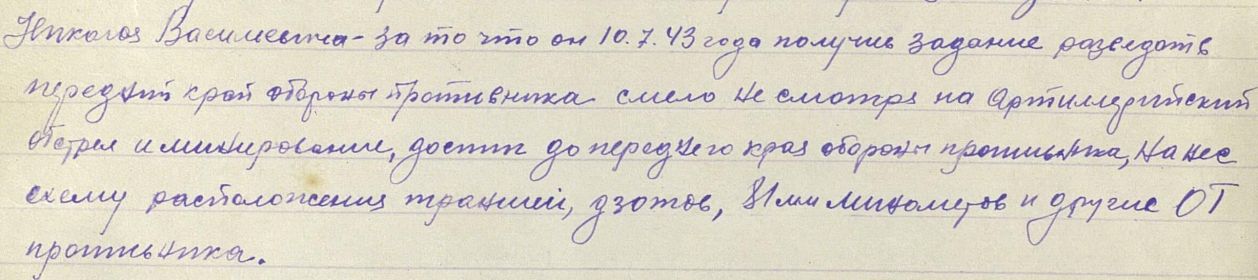 Николая Васильевича - за то что он 10.7.43 года получив задание разведать
передний край обороны противника смело не смотря на Артиллерийский
обстрел и минирование, достиг до переднего края обороны противника, нанес
схему расположения траншей, дзотов, 81 мм минометов и другие ОТ
противника.